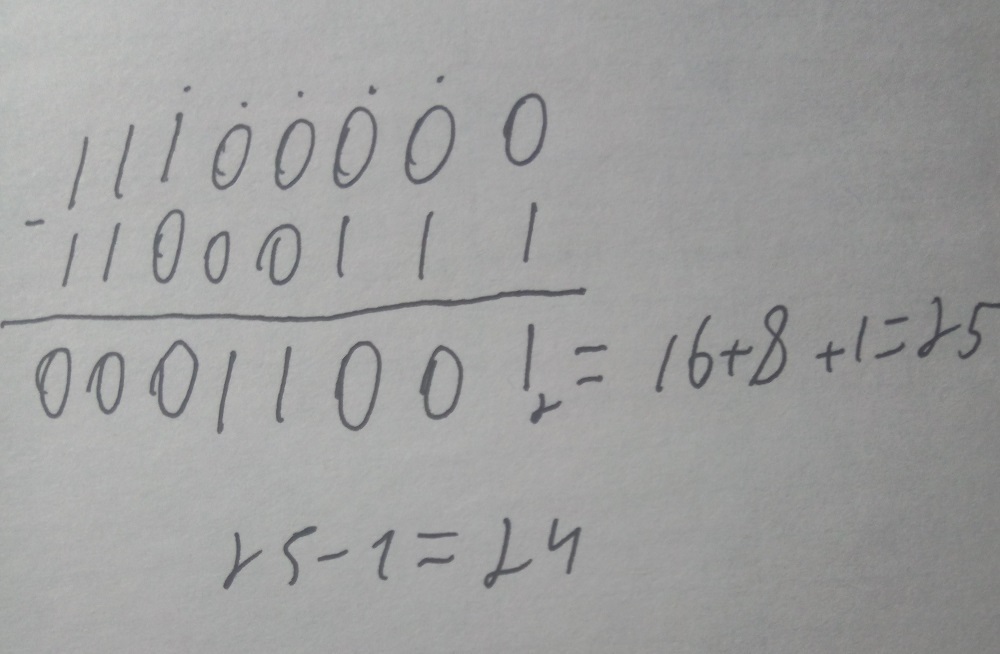 11100000
-
11000111
00011001₂ = 16+8+1=25
25-1=24